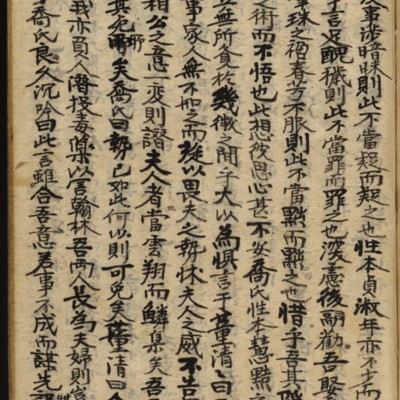 事諧暗昧則此不當疑而疑之也性本貞淑年亦不
子言足醜穢則此不當罪而罪之也深憲後嗣勸吾娶
珠之褐春芳不服則此不當黜而黜之也惜乎吾其
之術而不悟也此想彼思心甚不安喬氏性本慧黠之
無所負於幾微之間乎大以為惧言于董清曰
事家人無不知之而從以畏夫之勢怵夫人之威不告
相公之意一変則謗夫人者當雲翔而鱗集矣吾
其死所矣喬氏曰勢已如此何以則可免矣董清曰
我亦負人潛投毒藥以害翰林吾両人長為夫婦則豈
喬氏良久沉吟曰此言雖合吾意若事不成而謀先